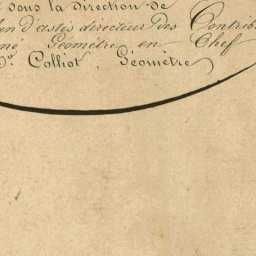 sous la direction de
directeur des Contrib
Géomètre en Chef
Colliot, Géomètre